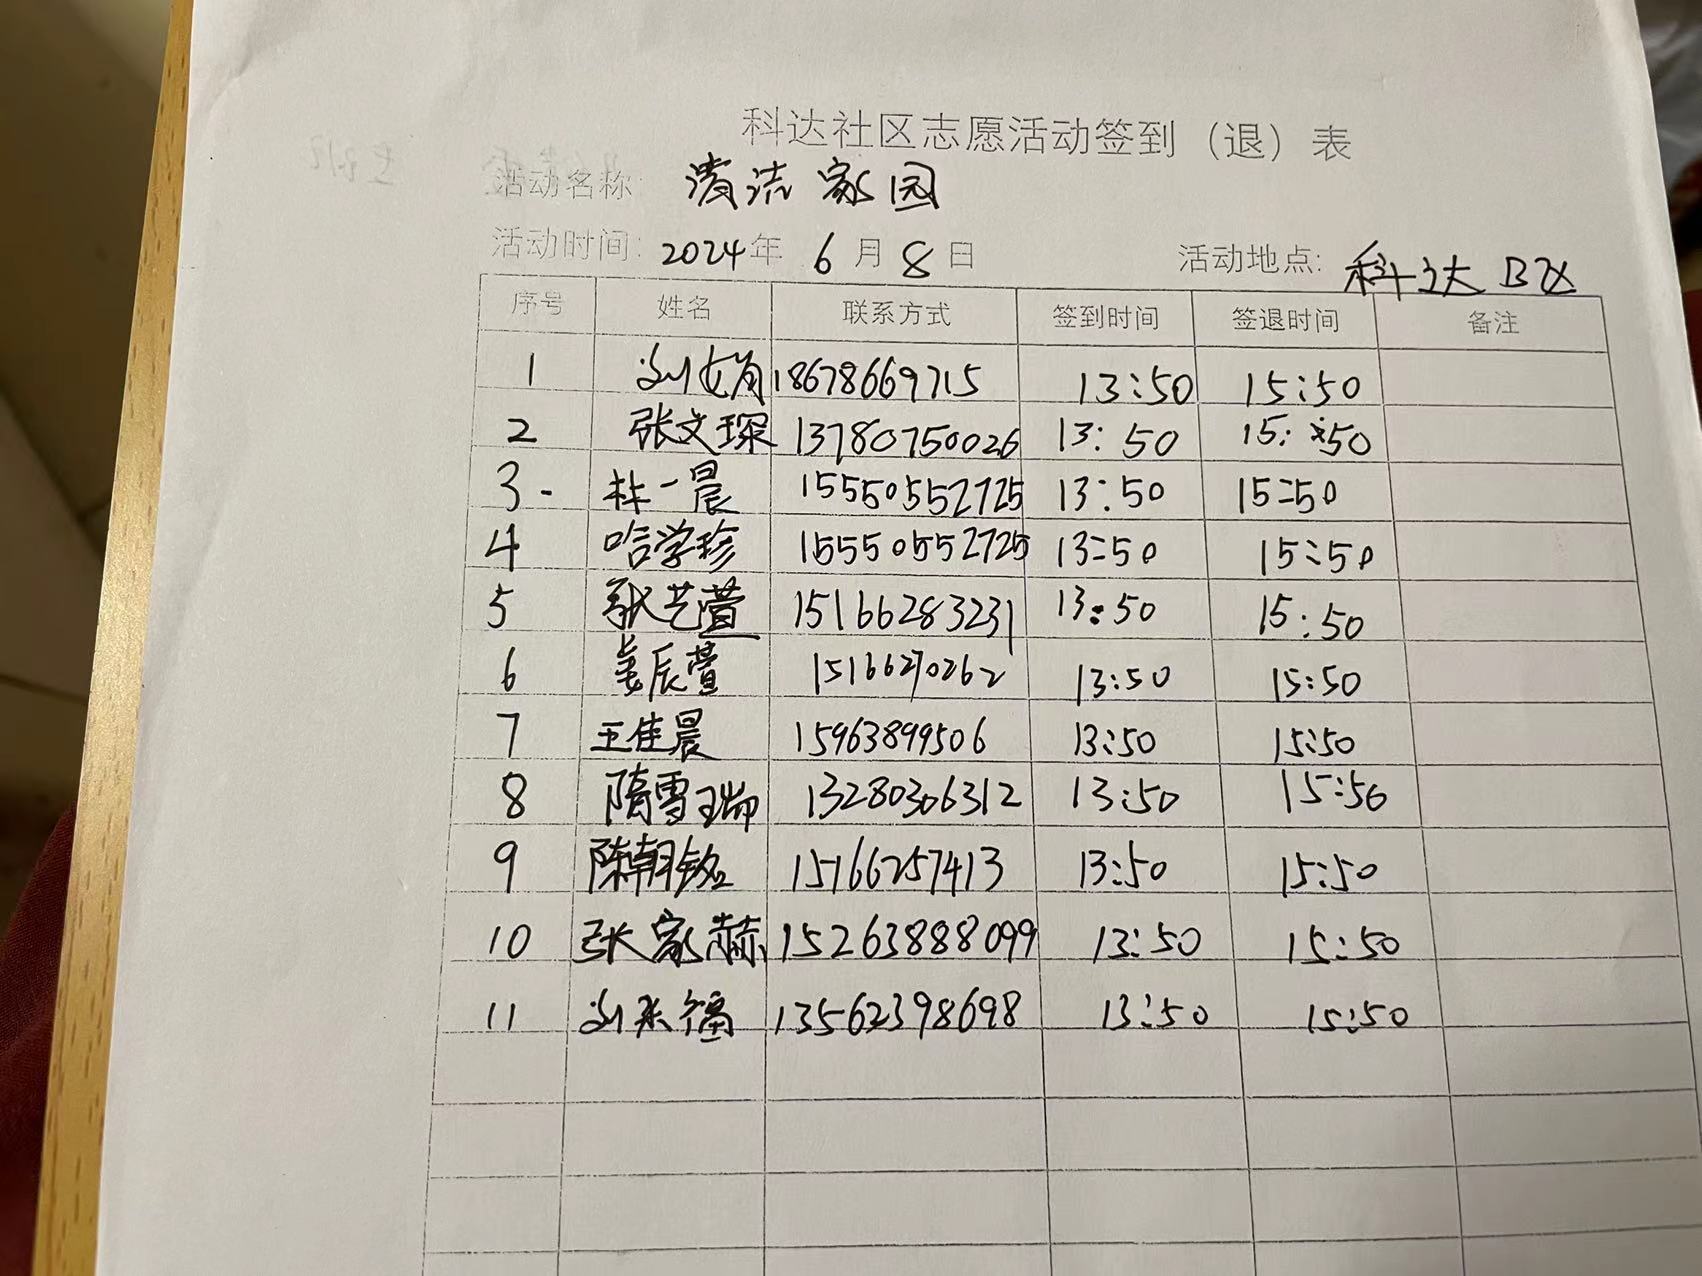 科达社区志愿活动签到（退）表
活动名称: 清洁家园
活动时间: 2024年 6月 8日 活动地点: 科达B区
序号 姓名 联系方式 签到时间 签退时间 备注
1 刘文娟 18678669715 13:50 15:50
2 张文琛 13780750026 13:50 15:50
3 杜一晨 15550552725 13:50 15:50
4 哈学珍 15550552725 13:50 15:50
5 张艺萱 15166283231 13:50 15:50
6 姜辰萱 15166270262 13:50 15:50
7 王佳晨 15963899506 13:50 15:50
8 隋雪瑞 13280306312 13:50 15:50
9 陈朝铭 15166257413 13:50 15:50
10 张家赫 15263888099 13:50 15:50
11 刘来福 13562398698 13:50 15:50